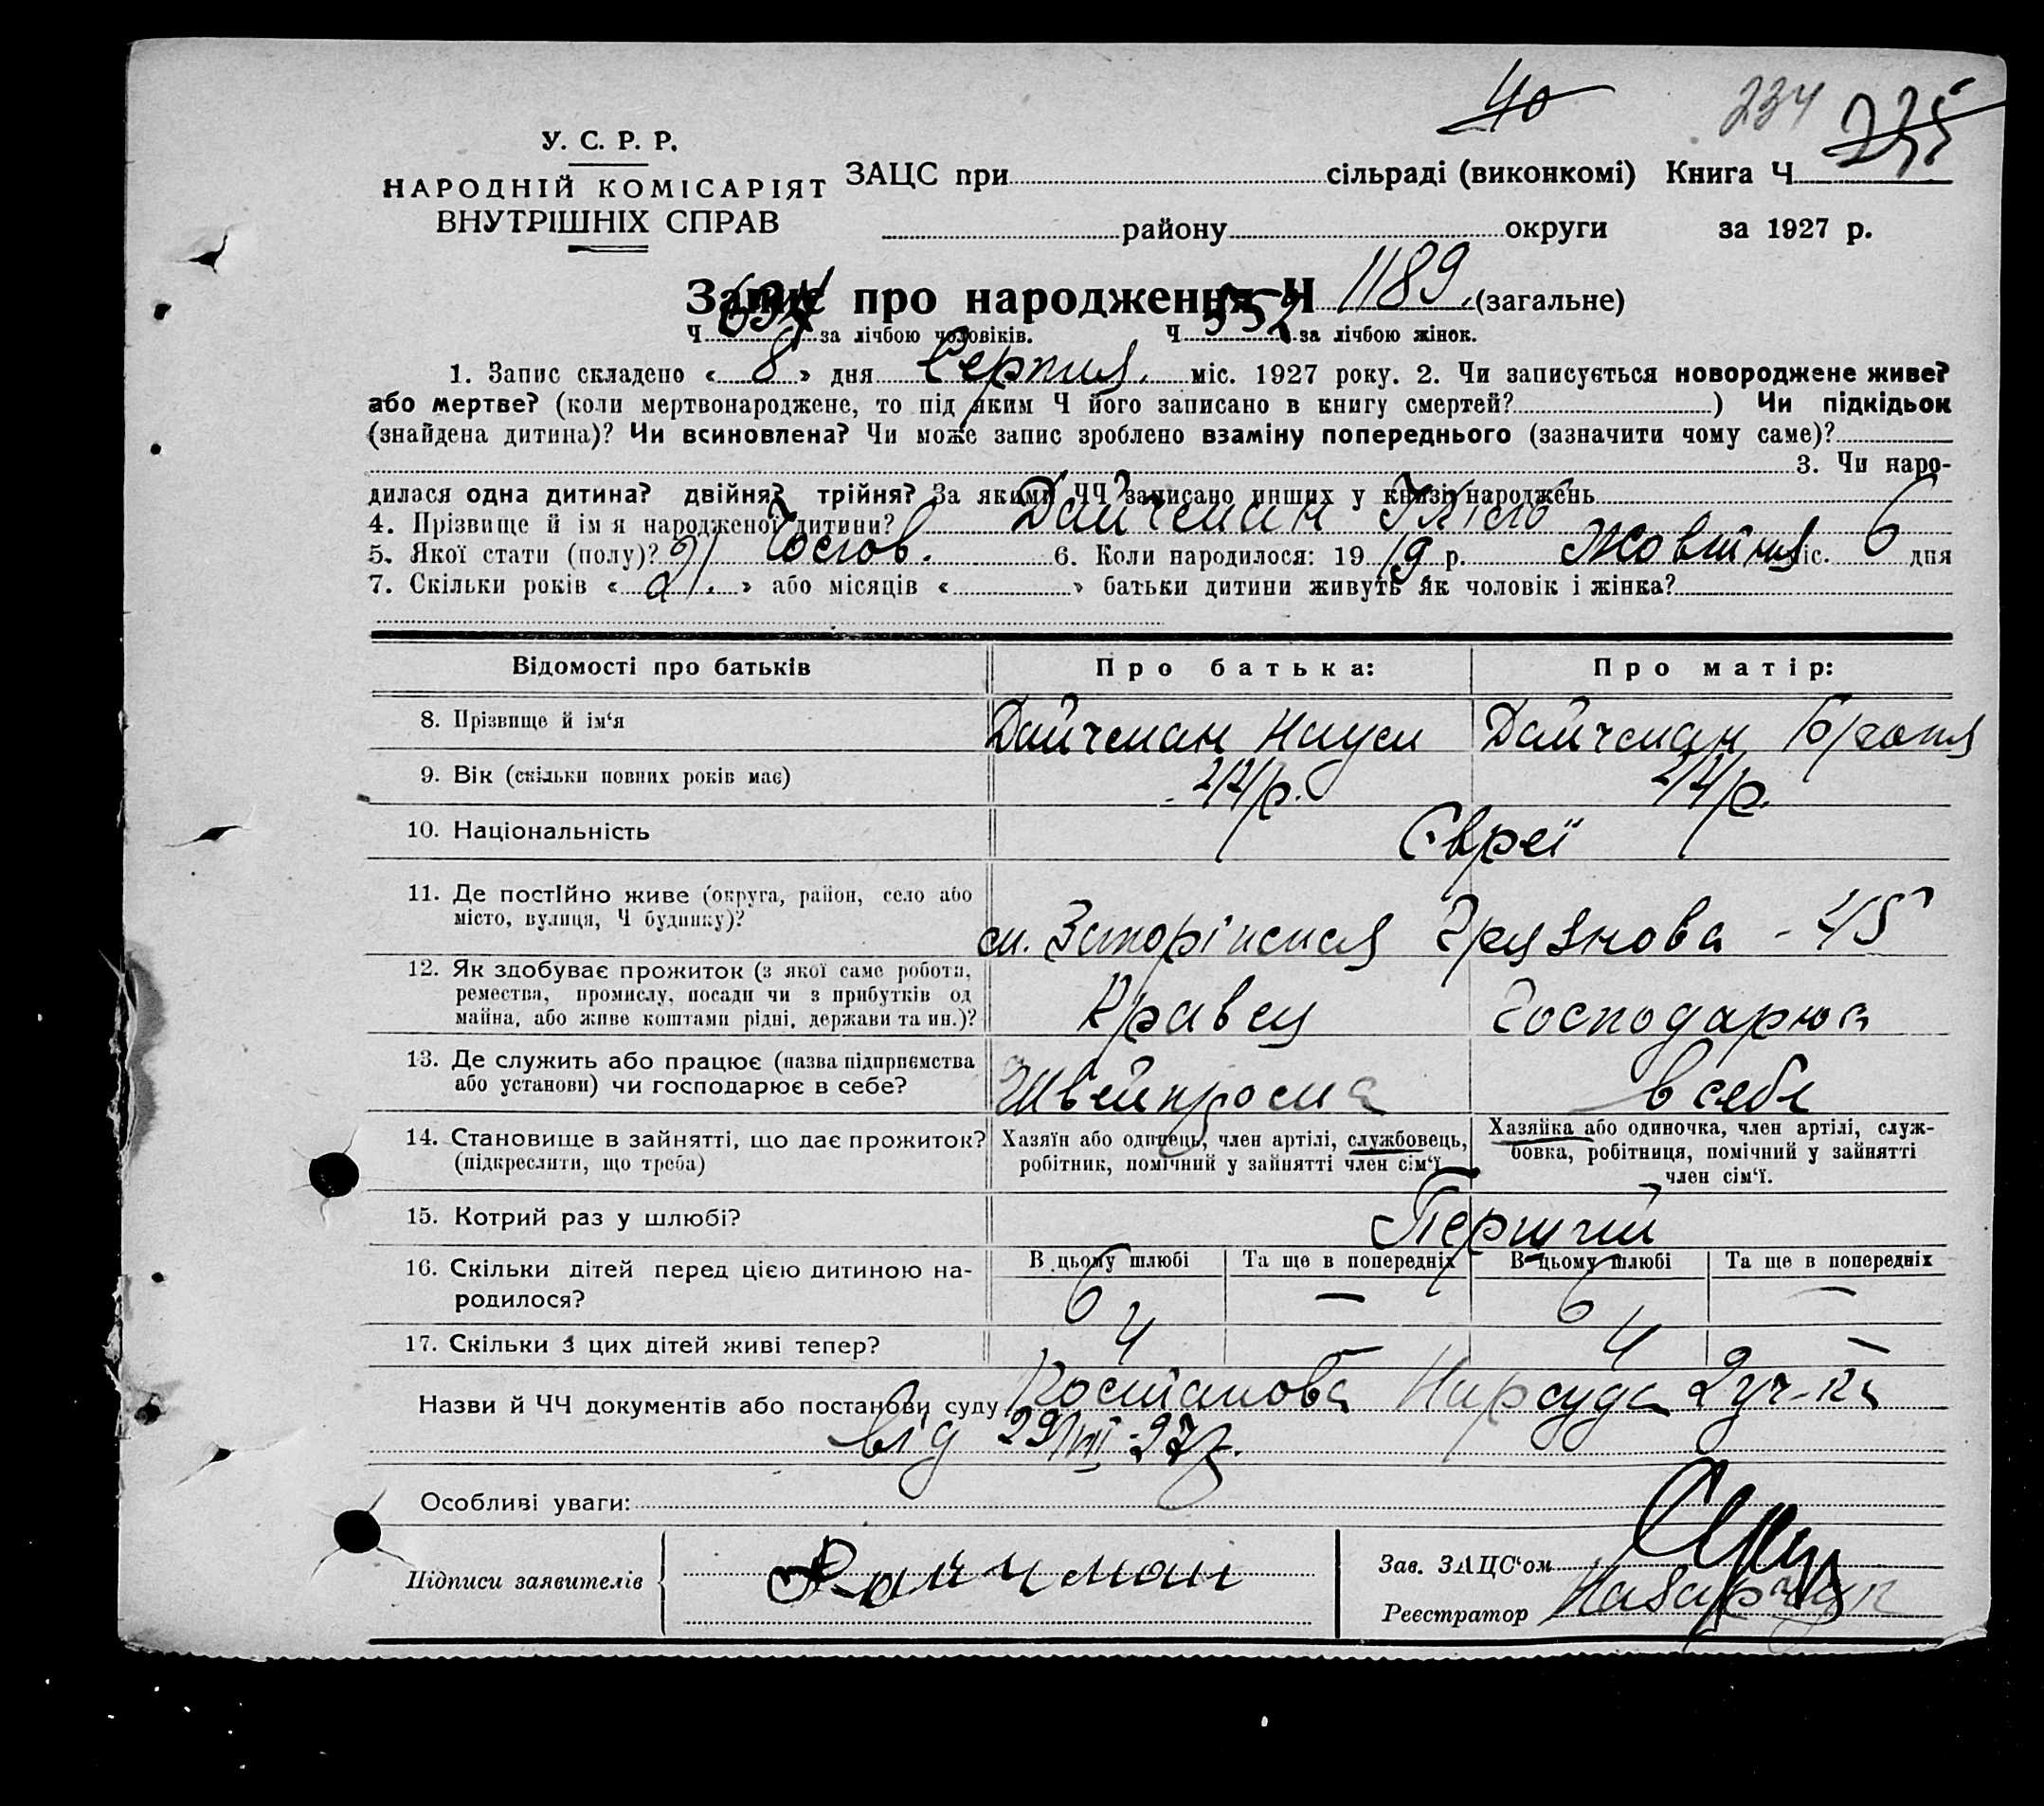 40 234 235
У. С. Р. Р.
НАРОДНІЙ КОМІСАРІЯТ
ВНУТРІШНІХ СПРАВ
ЗАЦС при сільраді (виконкомі) Книга Ч
району округи за 1927 р.
Запис про народження Ч 1189 (загальне)
Ч 637 за лічбою чоловіків. Ч 552 за лічбою жінок.
1. Запис складено « 8 » дня Серпня міс. 1927 року. 2. Чи записується новороджене живе?
або мертве? (коли мертвонароджене, то під яким Ч його записано в книгу смертей? ) Чи підкідьок
(знайдена дитина)? Чи всиновлена? Чи може запис зроблено взаміну попереднього (зазначити чому саме)?
3. Чи наро-
дилася одна дитина? двійня? трійня? За якими ЧЧ записано инших у книзі народжень
4. Прізвище й ім я народженої дитини? Дайчман
5. Якої стати (полу)? 6. Коли народилося: 19 19 р. Жовтня міс. 6 дня
7. Скільки років « 21 » або місяців « » батьки дитини живуть як чоловік і жінка?
Відомості про батьків Про батька: Про матір:
8. Прізвище й ім‘я Дайчман Наум Дайчман
9. Вік (скільки повних років має) 44р. 44р.
10. Національність Євреї
11. Де постійно живе (округа, район, село або
місто, вулиця, Ч будинку)? Грязнова - 45
12. Як здобуває прожиток (з якої саме роботи,
ремества, промислу, посади чи з прибутків од
майна, або живе коштами рідні, держави та ин.)? Кравец Господарює
13. Де служить або працює (назва підприємства
або установи) чи господарює в себе? Швейпрома в себе
14. Становище в зайнятті, що дає прожиток?
(підкреслити, що треба)
Хазяїн або одинець, член артілі, службовець,
робітник, помічний у зайнятті член сім‘ї
Хазяйка або одиночка, член артілі, служ-
бовка, робітниця, помічний у зайнятті
член сім‘ї.
15. Котрий раз у шлюбі? Перший
16. Скільки дітей перед цією дитиною на-
родилося?
В цьому шлюбі Та ще в попередніх В цьому шлюбі Та ще в попередніх
6 — 6 —
17. Скільки з цих дітей живі тепер? 4 4 —
Назви й ЧЧ документів або постанови суду Постанова Нарсуда 2 уч-ка
від 29/VII-27р.
Особливі уваги:
Підписи заявителів Дайчман
Зав. ЗАЦС‘ом
Реєстратор Назарчук